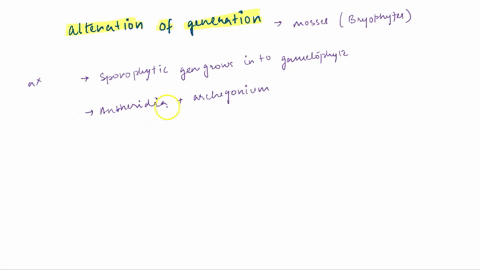 alternation of generation → mosses (Bryophytes)
→ Sporophytic gen grows in to gametophyte
→ Antheridia + archegonium